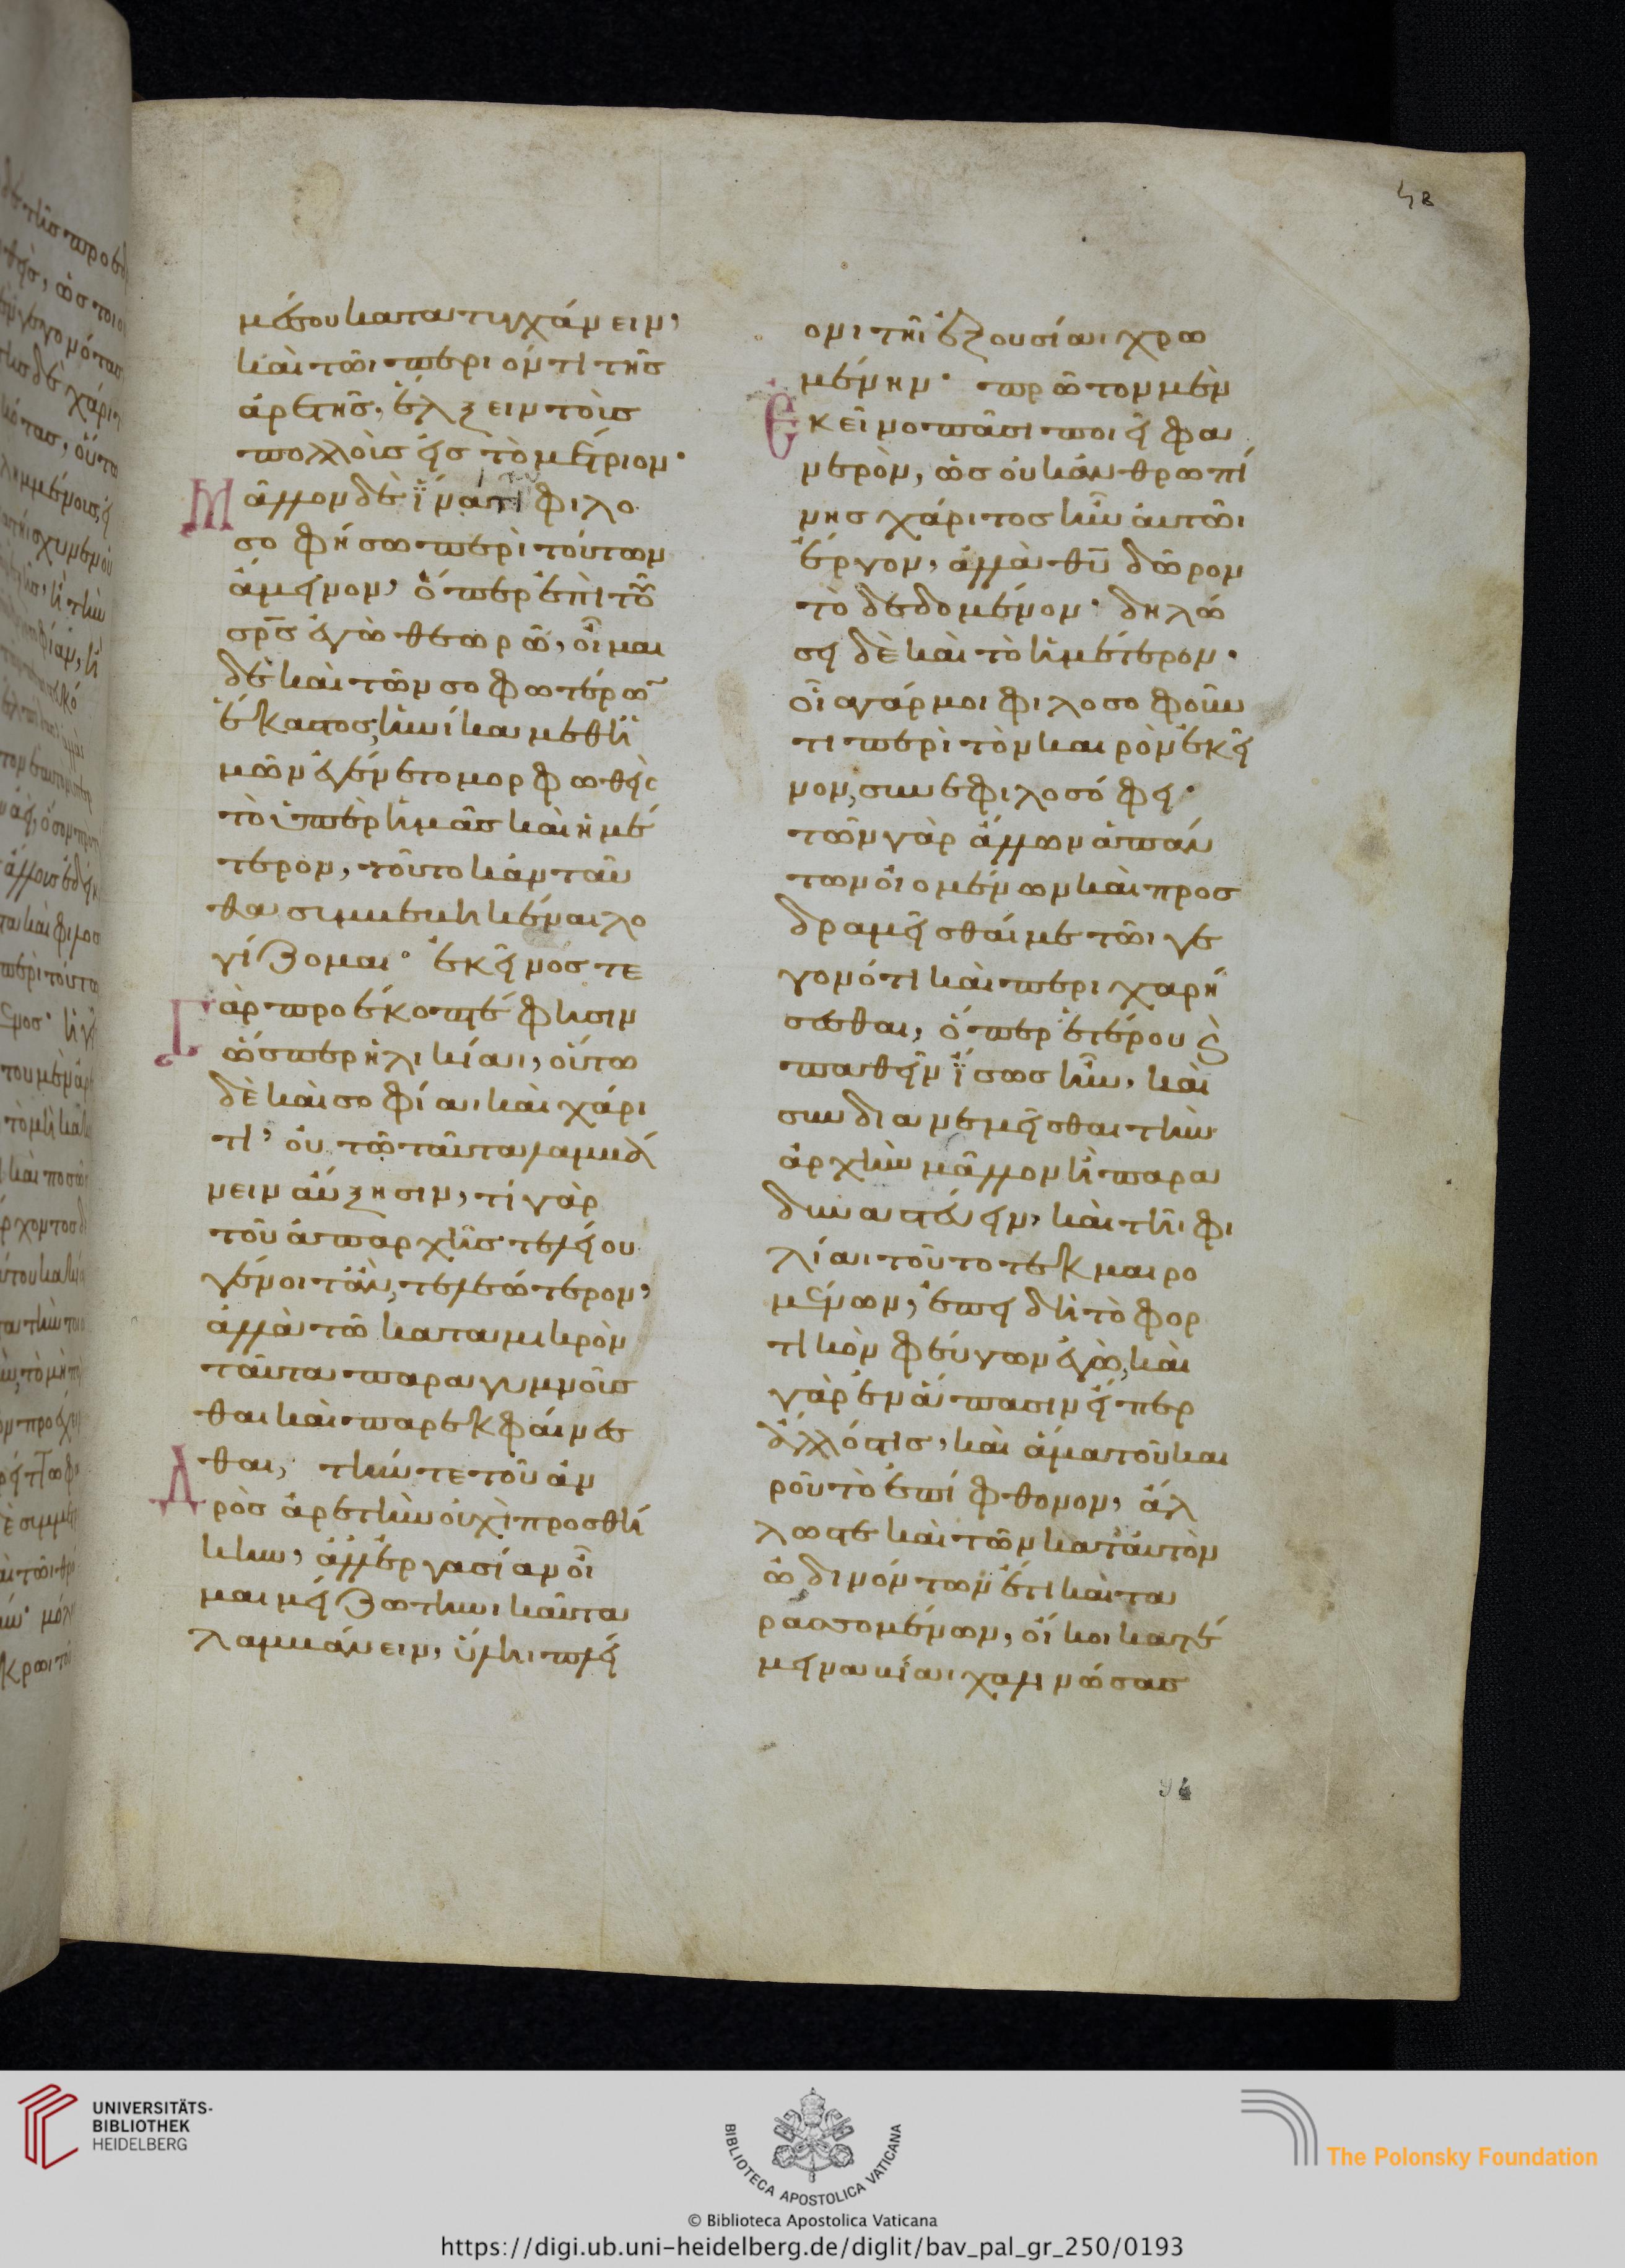 μέσου κατατυγχάνειν,
καὶ τῶι περιόντι τῆς
ἀρετῆς, ἕλξειν τοὺς
πολλοὺς εἰς τὸ μέτριον·
Μᾶλλον δὲ ἵνα τι φιλο
σοφήσω περὶ τούτων
ἄμεινον, ὅπερ ἐπὶ τοῦ
σρ̅ς ἐγὼ θεωρῶ, οἶμαι
δὲ καὶ τῶν σοφωτέρω̅
ἕκαστος, ἡνίκα μεθ ἡ
μῶν ἐγένετο μορφωθεὶς
τὸ ὑπὲρ ἡμᾶς καὶ ἡμέ
τερον, τοῦτο κἀνταῦ
θα συμβεβηκέναι λο
γίζομαι· ἐκεῖνός τε
Γὰρ προέκοπτέ φησιν
ὥσπερ ἡλικίαι, οὕτω
δὲ καὶ σοφίαι καὶ χάρι
τι, οὐ τῶ ταῦτα λαμβά
νειν αὔξησιν, τί γὰρ
τοῦ ἀπαρχῆς τελείου
γένοιτ ἂν, τελεώτερον,
ἀλλὰ τῶ κατα μικρὸν
ταῦτα παραγυμνοῦσ
θαι καὶ παρεκφαίνεσ
θαι, τήν τε τοῦ ἀν
Δρὸς ἀρετὴν οὐχὶ προσθή
κην, ἀλλ ἐργασίαν οἶ
μαι μείζω τηνικαῦτα
λαμβάνειν, ὕληι πλεί
ονι τῆι ἐξουσίαι χρω
μένην· πρῶτον μὲν
Ἐκεῖνο πᾶσι ποιεῖ φα
νερὸν, ὡς οὐκ ἀνθρωπί
νης χάριτος ἦν αὐτῶι
ἔργον, ἀλλὰ θ̅υ̅ δῶρον
τὸ δεδομένον· δηλώ
σει δὲ καὶ τὸ ἡμέτερον·
οἷα γάρ μοι φιλοσοφοῦν
τι περὶ τὸν καιρὸν ἐκεῖ
νον, συνεφιλοσόφει·
τῶν γὰρ ἄλλων ἁπάν
των οἰομένων καὶ προσ
δραμεῖσθαί με τῶι γε
γονότι καὶ περιχαρή
σεσθαι, ὅπερ ἑτέρους
παθεῖν ἴσως ἦν, καὶ
συνδιανεμεῖσθαι τὴν
ἀρχὴν μᾶλλον ἢ παρα
δυναστεύειν, καὶ τῆι φι
λίαι τοῦτο τεκμαιρο
μένων, ἐπειδὴ τὸ φορ
τικὸν φεύγων ἐγὼ, καὶ
γὰρ ἐν ἅπασιν εἴπερ
ἄλλός τις, καὶ ἅμα τοῦ και
ροῦ τὸ ἐπίφθονον, ἄλ
λως τε καὶ τῶν κατ αὐτὸν
ὠδινόντων ἔτι καὶ τα
ρασσομένων, οἴκοι κατέ
μεινα βίαι χαλινώσας
94
UNIVERSITÄTS-
BIBLIOTHEK
HEIDELBERG
BIBLIOTECA APOSTOLICA VATICANA
The Polonsky Foundation
© Biblioteca Apostolica Vaticana
https://digi.ub.uni-heidelberg.de/diglit/bav_pal_gr_250/0193